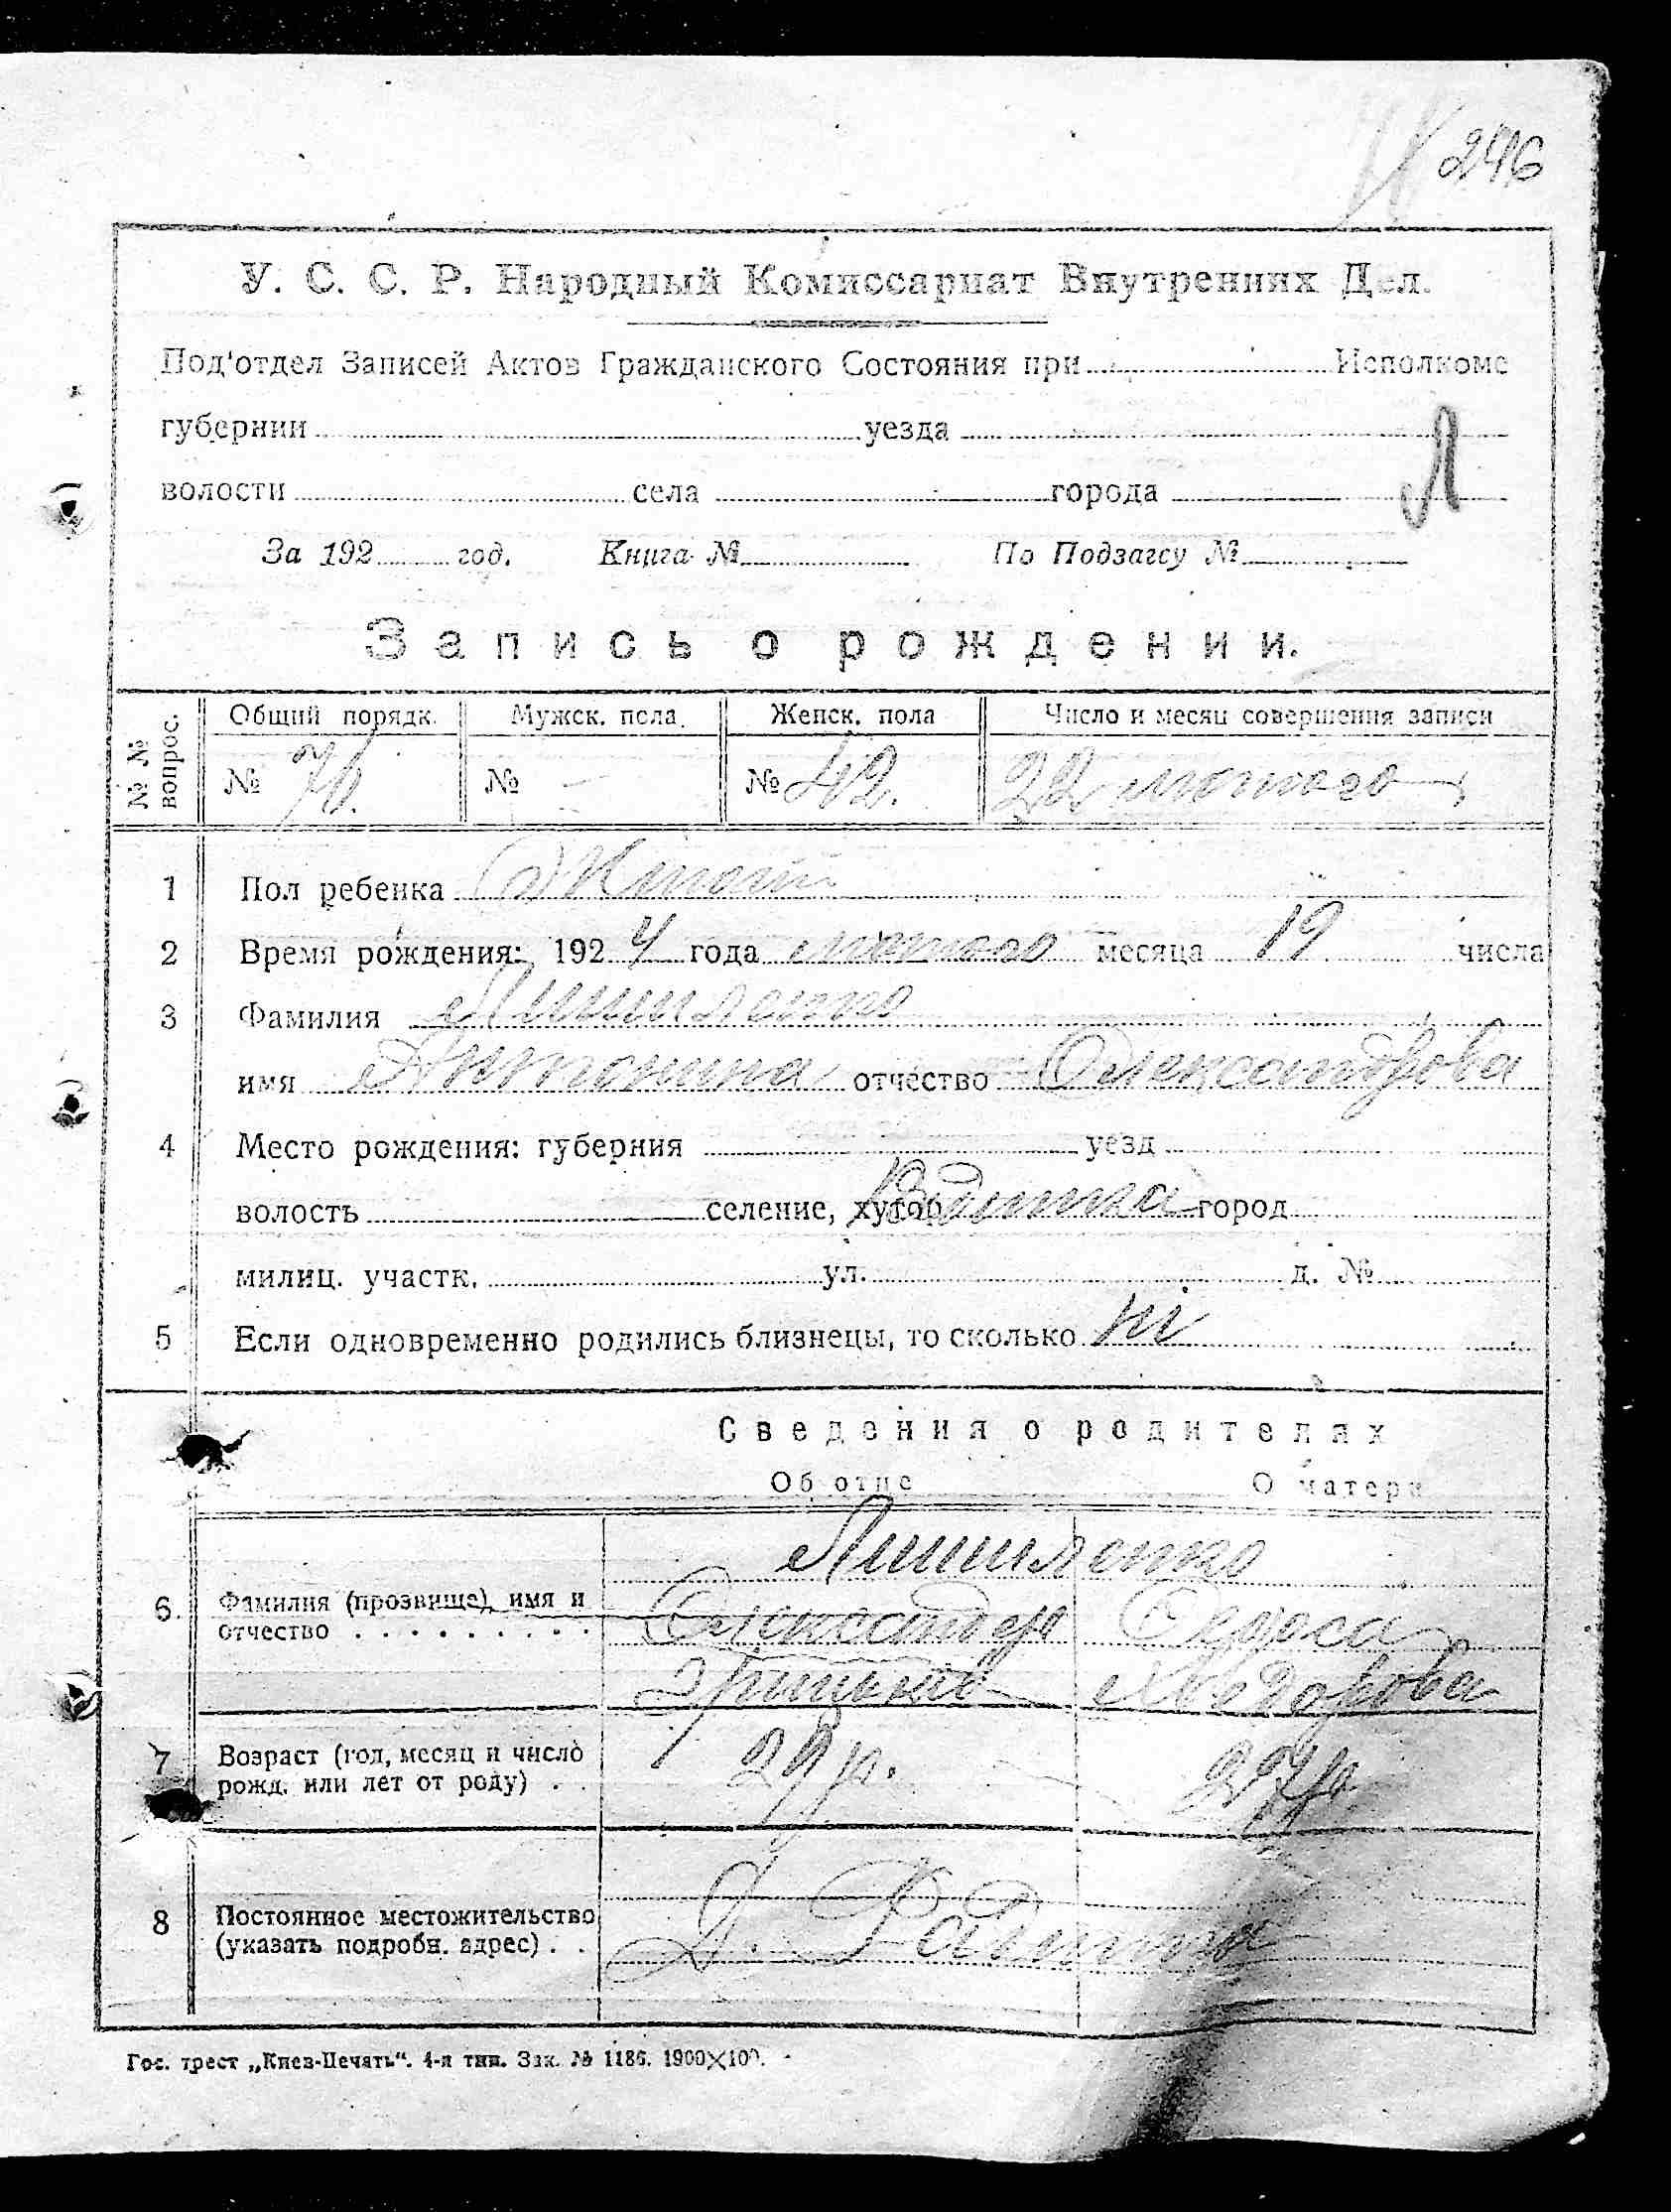 246
У. С. С. Р. Народный Комиссариат Внутренних Дел.
Под'отдел Записей Актов Гражданского Состояния при Исполкоме
губернии уезда
Л
волости села города
За 192 год. Книга № По Подзагсу №
Запись о рождении.
№ № вопрос. Общий порядк. Мужск. пола. Женск. пола Число и месяц совершения записи
№ 76. № - № 42. 22 лютого
1 Пол ребенка
2 Время рождения: 1924 года лютого месяца 19 числа
3 Фамилия
имя Антонина отчество Олександрова
4 Место рождения: губерния уезд
волость селение, хутор город
милиц. участк. ул. д. №
5 Если одновременно родились близнецы, то сколько ні
Сведения о родителях
Об отце О матери
6. Фамилия (прозвище), имя и
отчество Олександер
Хведорова
7 Возраст (год, месяц и число 29 р. 27 р.
рожд. или лет от роду)
8 Постоянное местожительство
(указать подробн. адрес)
Гос. трест „Киев-Печать“. 4-я тип. Зак. № 1186. 1900×100.